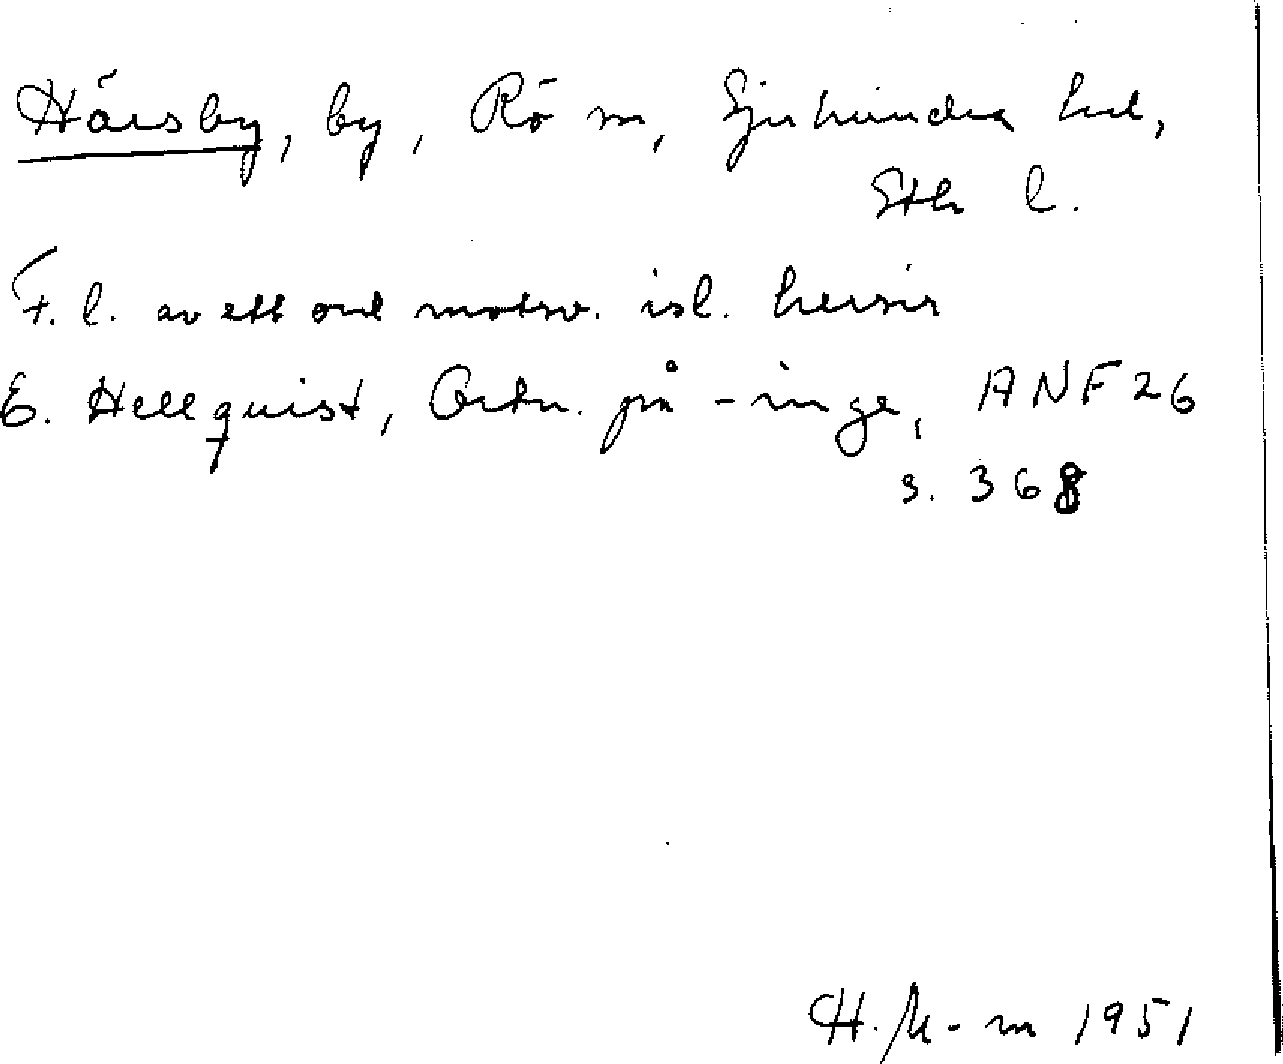 Härsby, by, Rö sn, Sjuhundra hd,
Sth l.
F. l. av ett ord motsv. isl. hersir
E. Hellquist, Ortn. på -inge, ANF 26
s. 368
1951